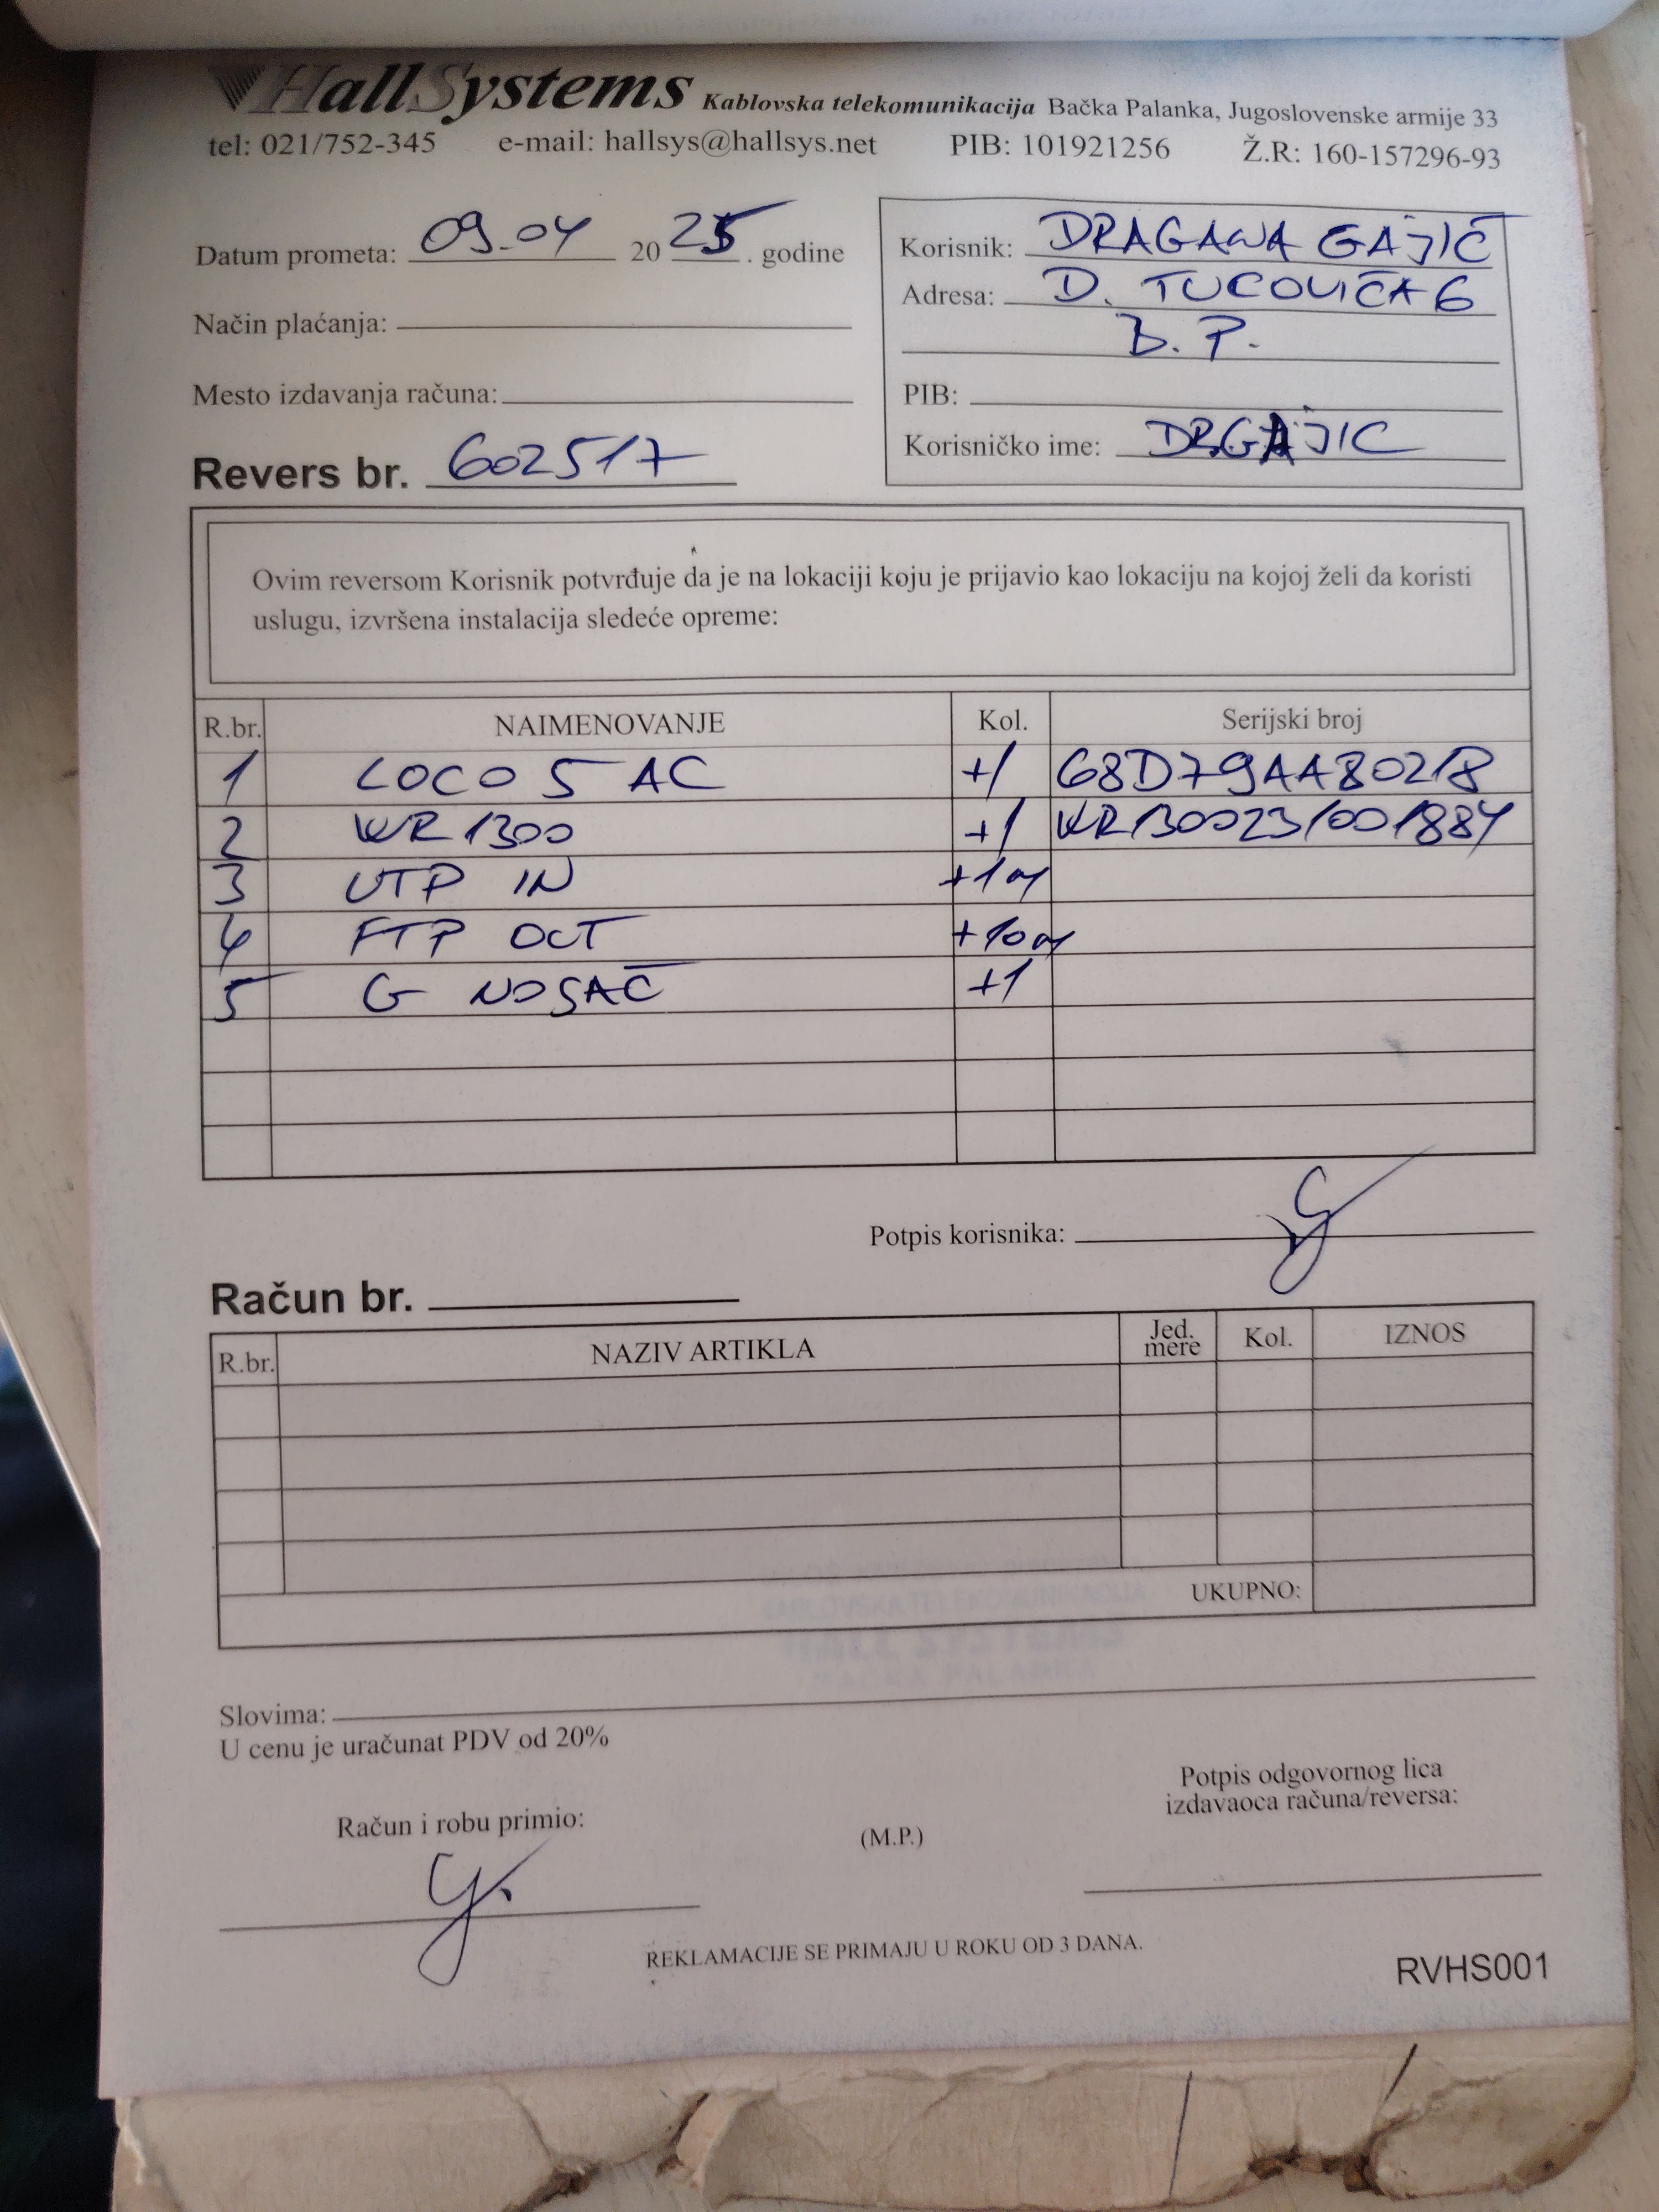 HallSystems Kablovska telekomunikacija Bačka Palanka, Jugoslovenske armije 33
tel: 021/752-345 e-mail: hallsys@hallsys.net PIB: 101921256 Ž.R: 160-157296-93
Datum prometa: 09.04 2025. godine
Način plaćanja:
Mesto izdavanja računa:
Revers br. 602517
Korisnik: DRAGANA GAJIĆ
Adresa: D. TUCOVIĆA 6
B. P.
PIB:
Korisničko ime: DRGAJIC
Ovim reversom Korisnik potvrđuje da je na lokaciji koju je prijavio kao lokaciju na kojoj želi da koristi
uslugu, izvršena instalacija sledeće opreme:
R.br. NAIMENOVANJE Kol. Serijski broj
1 LOCO 5 AC +1 68D79AA80218
2 WR1300 +1 WR130023/001884
3 UTP IN +1m
4 FTP OUT +10m
5 G NOSAČ +1
Potpis korisnika:
Račun br.
R.br. NAZIV ARTIKLA Jed. mere Kol. IZNOS
UKUPNO:
KABLOVSKA TELEKOMUNIKACIJA
HALL SYSTEMS
BAČKA PALANKA
Slovima:
U cenu je uračunat PDV od 20%
Račun i robu primio:
(M.P.)
Potpis odgovornog lica
izdavaoca računa/reversa:
REKLAMACIJE SE PRIMAJU U ROKU OD 3 DANA.
RVHS001